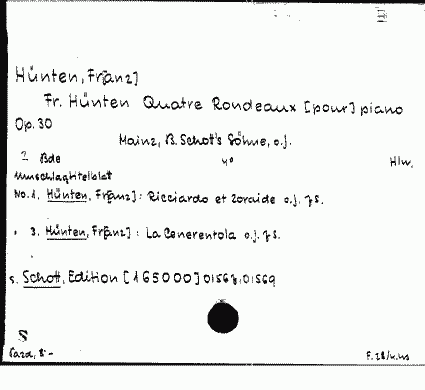 Hünten, Franz]
Fr. Hünten Quatre Rondeaux [pour] piano
Op. 30
Mainz, B. Schott's Söhne, o.j.
2 Bde 4° Hlw.
Umschlagtitelblat
No. 1. Hünten, Franz]: Ricciardo et Zoraide o.j. 7 S.
" 3. Hünten, Franz]: La Cenerentola o.j. 7 S.
s. Schott, Edition [165000] 01567, 01569
S